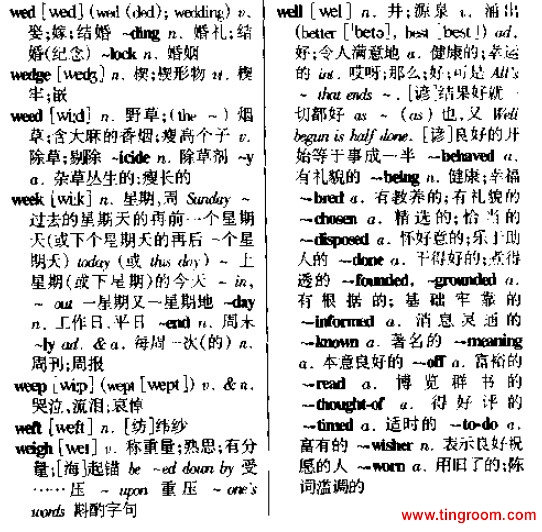 wed [wed] (wed (ded); wedding) v.
娶;嫁;结婚 ~ding n. 婚礼;结
婚(纪念) ~lock n. 婚姻
wedge [wedʒ] n. 楔;楔形物 vt. 楔
牢;嵌
weed [wiːd] n. 野草;(the ~) 烟
草;含大麻的香烟;瘦高个子 v.
除草;剔除 ~icide n. 除草剂 ~y
a. 杂草丛生的;瘦长的
week [wiːk] n. 星期,周 Sunday ~
过去的星期天的再前一个星期
天(或下个星期天的再后一个星
期天) today (或 this day) ~ 上
星期(或下星期)的今天 ~ in,
~ out 一星期又一星期地 ~day
n. 工作日,平日 ~end n. 周末
~ly ad. & a. 每周一次(的) n.
周刊;周报
weep [wiːp] (wept [wept]) v. & n.
哭泣,流泪;哀悼
weft [weft] n. [纺]纬纱
weigh [weɪ] v. 称重量;熟思;有分
量;[海]起锚 be ~ed down by 受
……压 ~ upon 重压 ~ one's
words 斟酌字句
well [wel] n. 井;源泉 v. 涌出
(better ['betə], best [best]) ad.
好;令人满意地 a. 健康的;幸运
的 int. 哎呀;那么;好;可是 All's
~ that ends ~. [谚]结果好就一
切都好 as ~ (as) 也,又 Well
begun is half done. [谚]良好的开
始等于事成一半 ~-behaved a.
有礼貌的 ~-being n. 健康;幸福
~-bred a. 有教养的;有礼貌的
~-chosen a. 精选的;恰当的
~-disposed a. 怀好意的;乐于助
人的 ~-done a. 干得好的;煮得
透的 ~-founded, ~-grounded a.
有根据的;基础牢靠的
~-informed a. 消息灵通的
~-known a. 著名的 ~-meaning
a. 本意良好的 ~-off a. 富裕的
~-read a. 博览群书的
~-thought-of a. 得好评的
~-timed a. 适时的 ~-to-do a.
富有的 ~-wisher n. 表示良好祝
愿的人 ~-worn a. 用旧了的;陈
词滥调的
www.tingroom.com